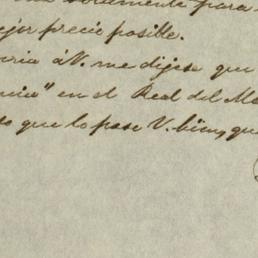 solamente para
ejor precio posible.
ria á V. me dijese que
ncia" en el Real del Mo
o que lo pase V. bien, que